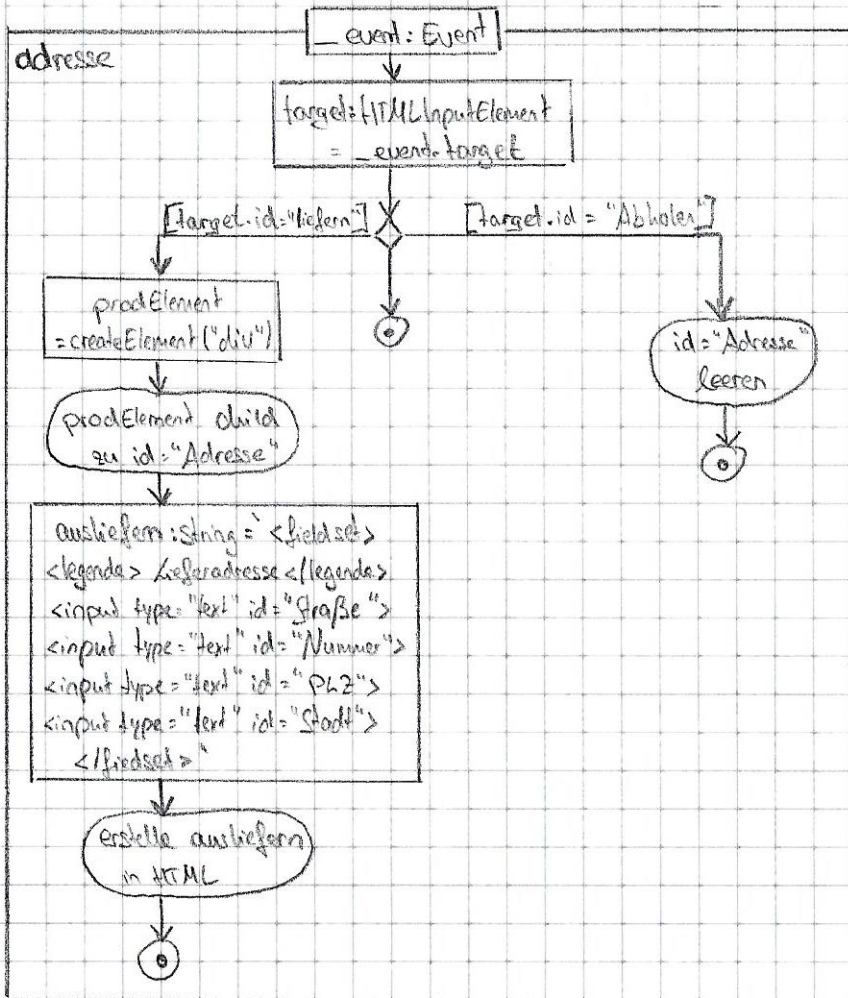 _event: Event
adresse
target: HTMLInputElement
= _event.target
[target.id="liefern"]
[target.id = "Abholen"]
prodElement
=createElement("div")
id="Adresse"
leeren
prodElement child
zu id="Adresse"
ausliefern:string=`<fieldset>
<legende> Lieferadresse</legende>
<input type="text" id="Straße">
<input type="text" id="Nummer">
<input type="text" id="PLZ">
<input type="text" id="Stadt">
</fiedset>`
erstelle ausliefern
in HTML